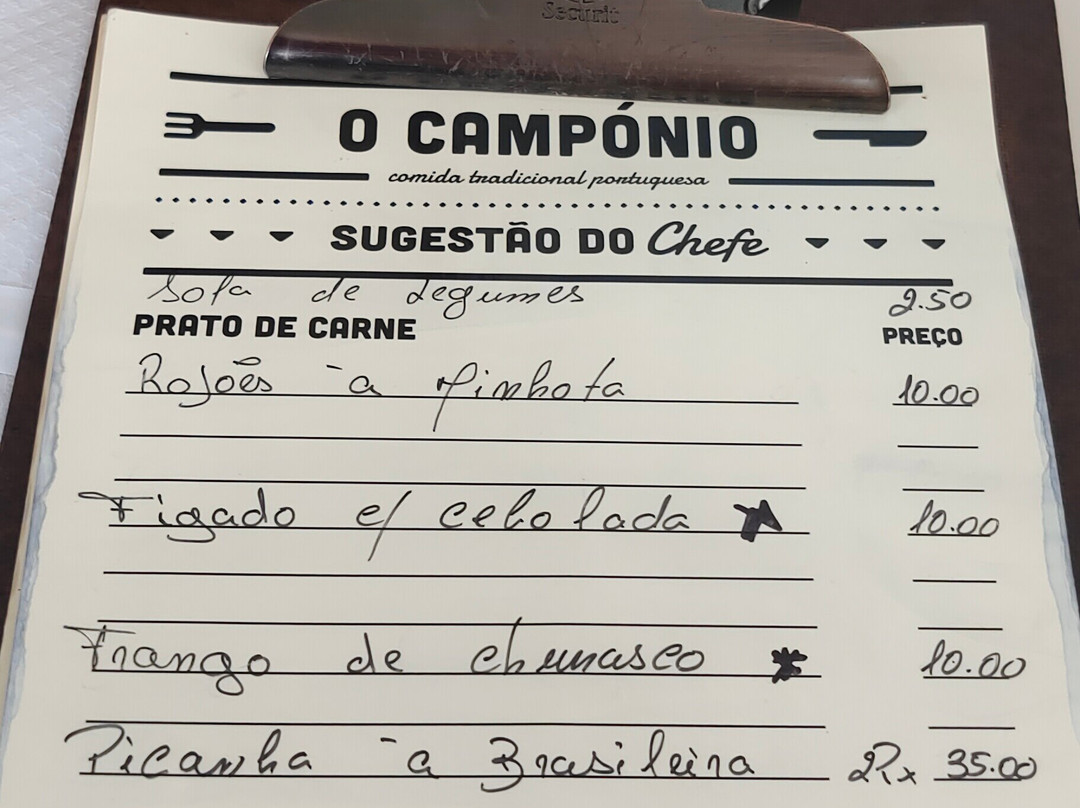 Securit
O CAMPÓNIO
comida tradicional portuguesa
SUGESTÃO DO Chefe
Sopa de Legumes 2.50
PRATO DE CARNE PREÇO
Rojões à Minhota 10.00
Figado c/ cebolada 10.00
Frango de churrasco * 10.00
Picanha à Brasileira 2Px 35.00